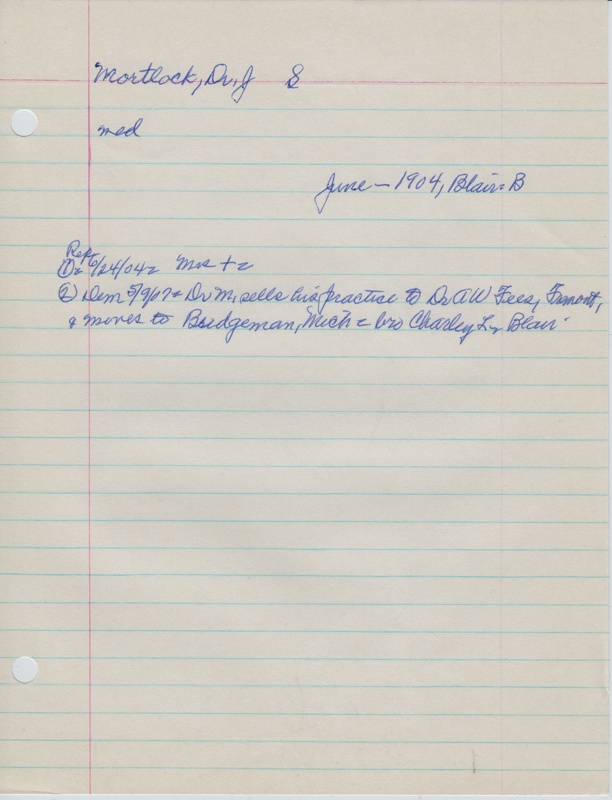 Mortlock, Dr. J S
med
June - 1904, Blair = B
Rep
① = 6/24/04 = Mos + =
② Dem 5/9/07 = Dr M, sells his practice to Dr A W Fees, Fremont,
& moves to Bridgeman, Mich = bro Charley Blair